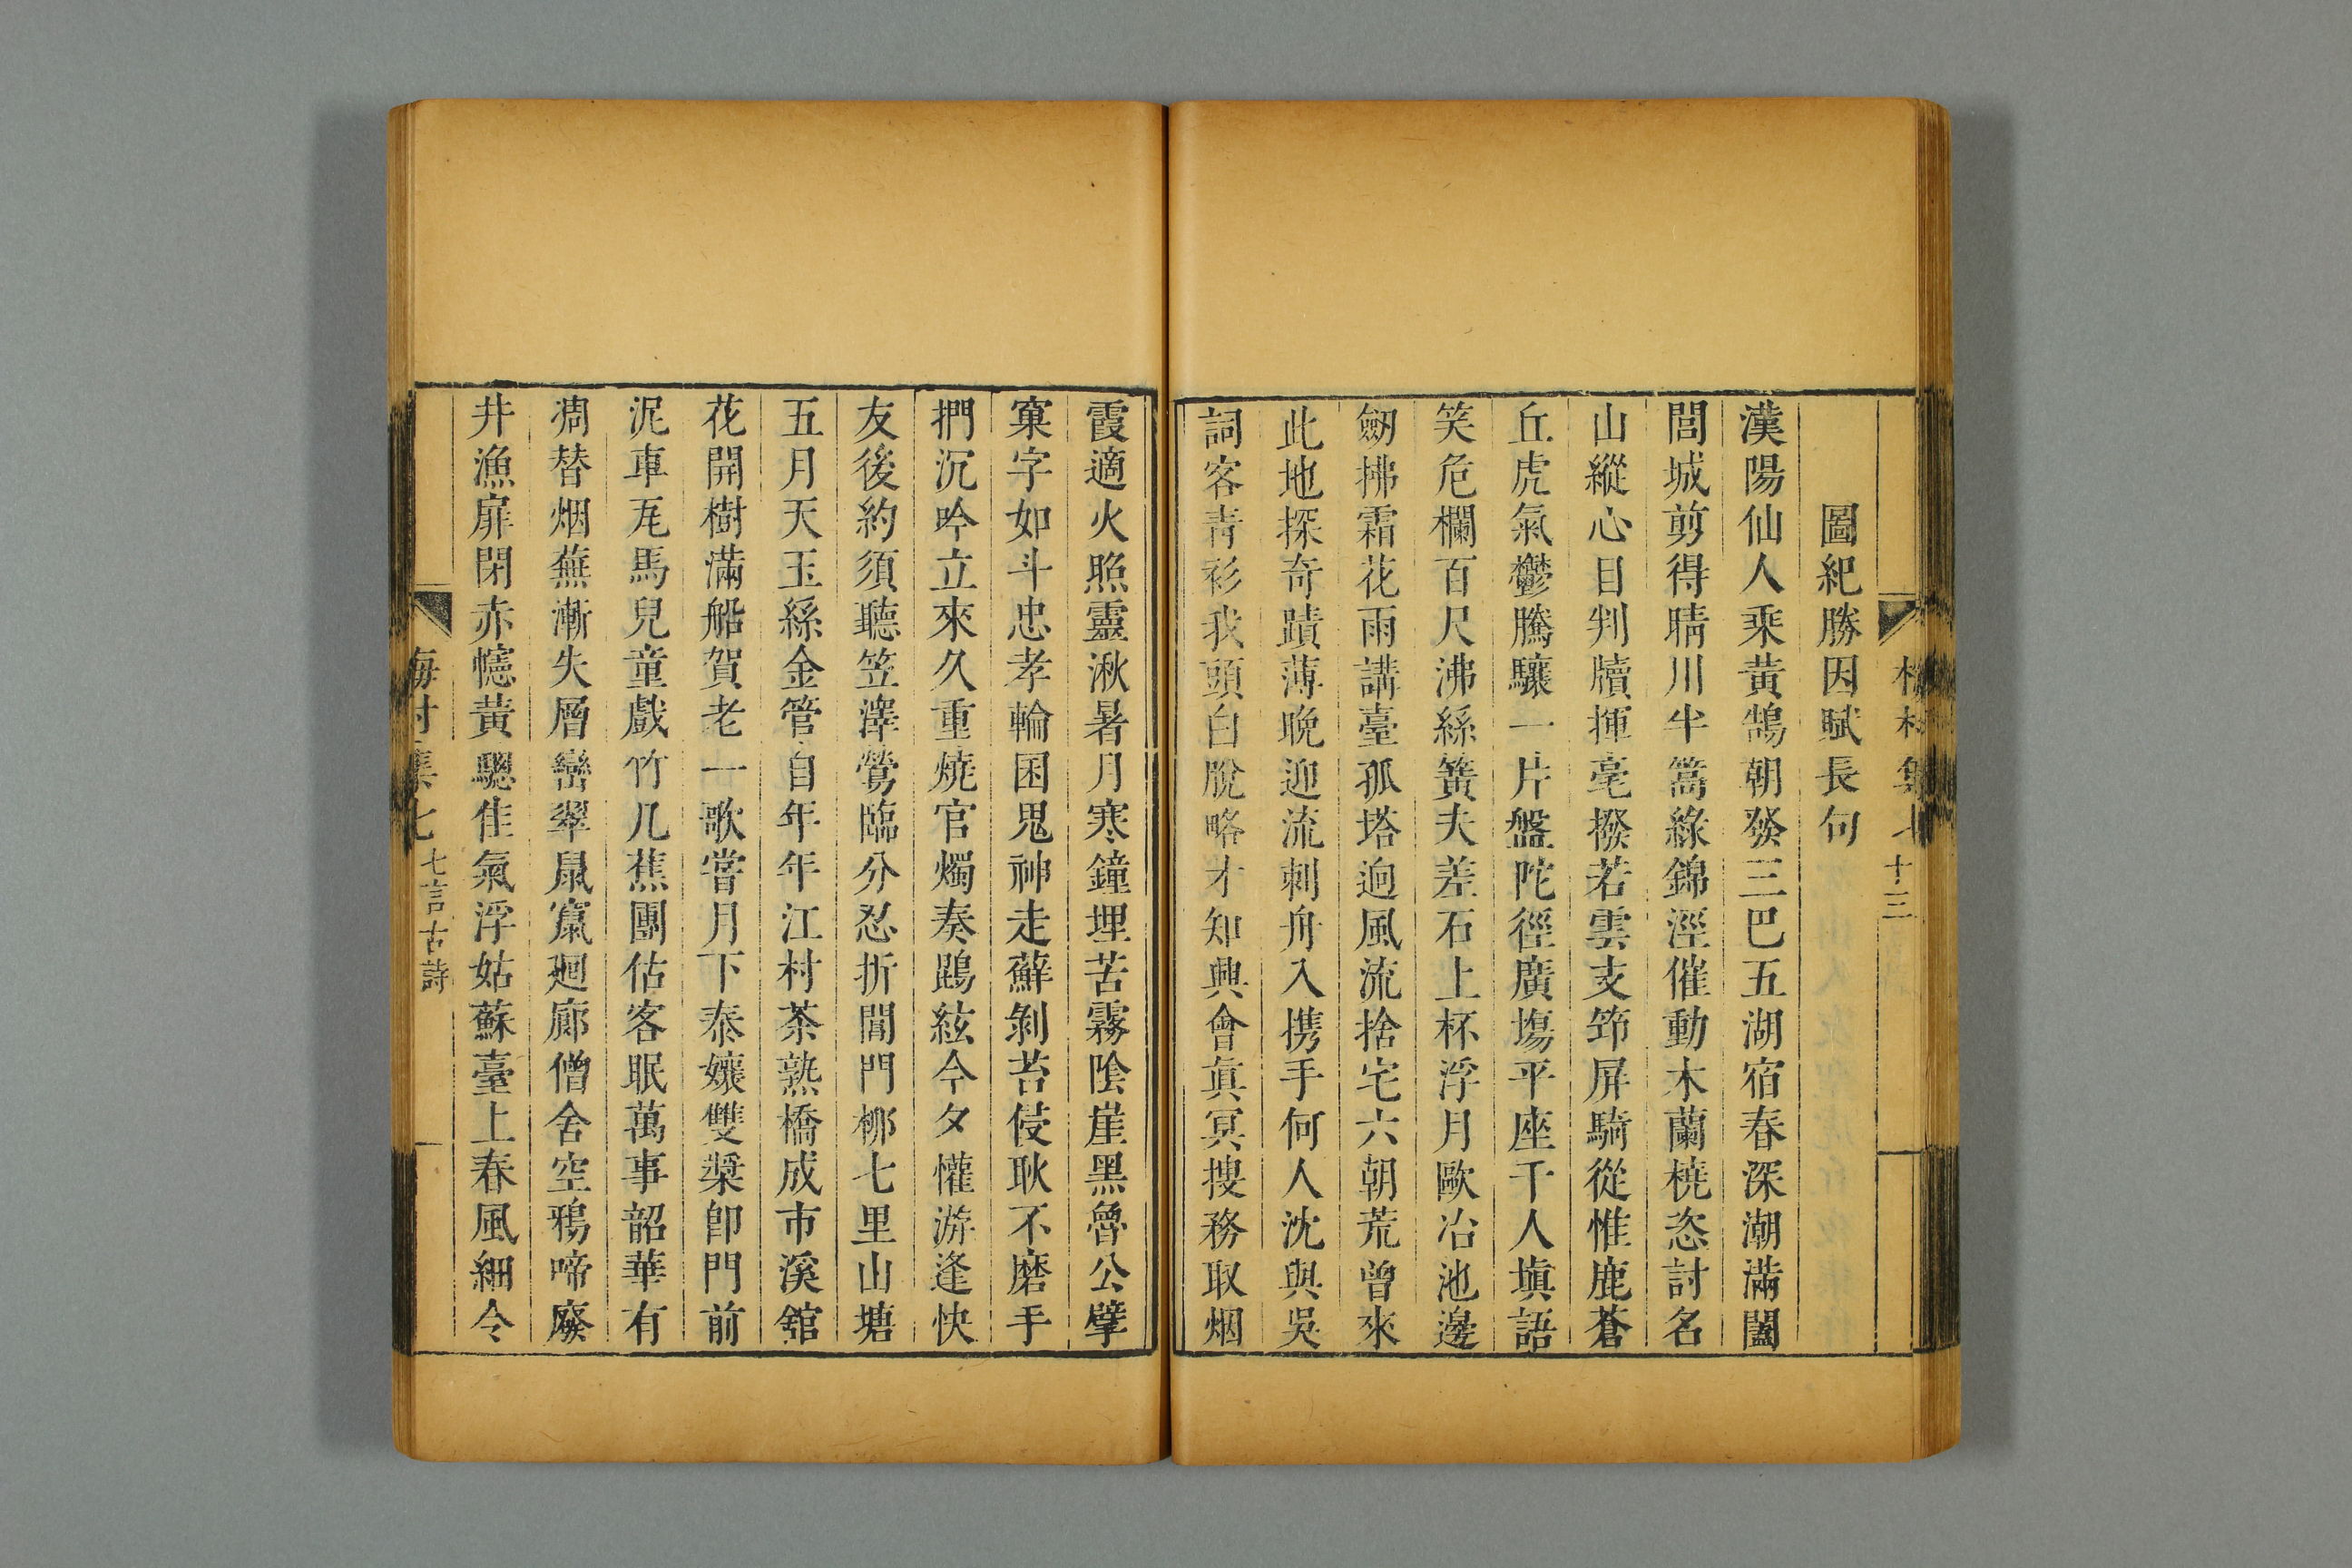 十三
圖紀勝因賦長句
漢陽仙人乘黃鵠朝發三巴五湖宿春深潮滿闔
閭城剪得晴川半篙綠錦涇催動木蘭橈恣討名
山縱心目判牘揮毫撥若雲支筇屏騎從惟鹿蒼
丘虎氣鬱騰驤一片盤陀徑廣塲平座千人塡語
笑危欄百尺沸絲簧夫差石上杯浮月歐冶池邊
劒拂霜花雨講臺孤塔迥風流捨宅六朝荒曾來
此地探奇蹟薄晚迎流刺舟入携手何人沈與吳
詞客靑衫我頭白脫略才知興會眞冥搜務取烟
霞適火照靈湫暑月寒鐘埋苦霧陰崖黑魯公擘
窠字如斗忠孝輪囷鬼神走蘚剝苔侵耿不磨手
捫沉吟立來久重燒官燭奏鵾絃今夕懽游逢快
友後約須聽笠澤鶯臨分忍折閶門柳七里山塘
五月天玉絲金管自年年江村茶熟橋成市溪館
花開樹滿船賀老一歌當月下泰孃雙槳卽門前
泥車瓦馬兒童戲竹几蕉團估客眠萬事韶華有
凋替烟蕪漸失層巒翠鼠竄廻廊僧舍空鴉啼廢
井漁扉閉赤幰黃驄佳氣浮姑蘇臺上春風細令
梅村集七 七言古詩